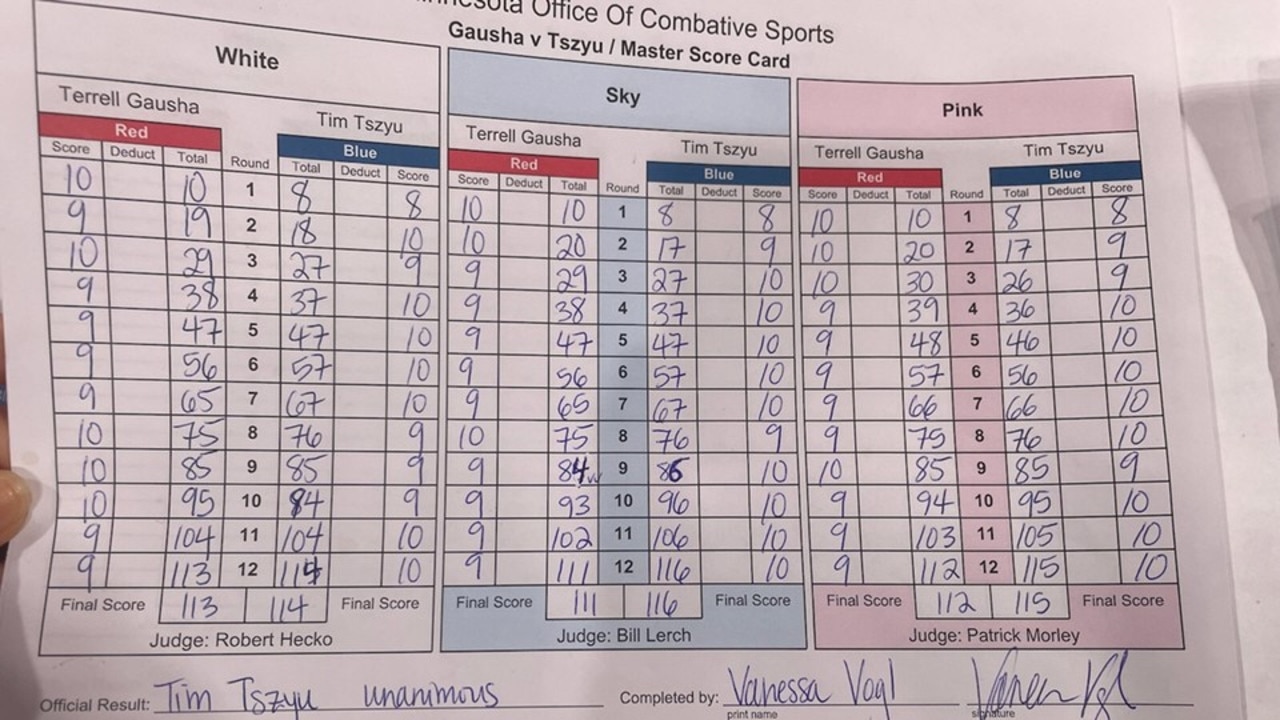 nnesota Office Of Combative Sports
Gausha v Tszyu / Master Score Card
White
Terrell Gausha Tim Tszyu
Red Blue
Score Deduct Total Round Total Deduct Score
10 10 1 8 8
9 19 2 18 10
10 29 3 27 9
9 38 4 37 10
9 47 5 47 10
9 56 6 57 10
9 65 7 67 10
10 75 8 76 9
10 85 9 85 9
10 95 10 84 9
9 104 11 104 10
9 113 12 114 10
Final Score 113 114 Final Score
Judge: Robert Hecko
Sky
Terrell Gausha Tim Tszyu
Red Blue
Score Deduct Total Round Total Deduct Score
10 10 1 8 8
10 20 2 17 9
9 29 3 27 10
9 38 4 37 10
9 47 5 47 10
9 56 6 57 10
9 65 7 67 10
10 75 8 76 9
9 84 9 86 10
9 93 10 96 10
9 102 11 106 10
9 111 12 116 10
Final Score 111 116 Final Score
Judge: Bill Lerch
Pink
Terrell Gausha Tim Tszyu
Red Blue
Score Deduct Total Round Total Deduct Score
10 10 1 8 8
10 20 2 17 9
10 30 3 26 9
9 39 4 36 10
9 48 5 46 10
9 57 6 56 10
9 66 7 66 10
9 75 8 76 10
10 85 9 85 9
9 94 10 95 10
9 103 11 105 10
9 112 12 115 10
Final Score 112 115 Final Score
Judge: Patrick Morley
Official Result: Tim Tszyu unanimous
Completed by: Vanessa Vogl
print name signature